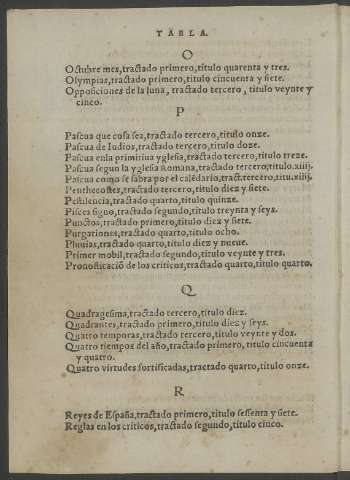 TABLA.
O
Octubre mes,tractado primero,titulo quarenta y tres.
Olympias, tractado primero,titulo cincuenta y siete.
Opposiciones de la luna, tractado tercero, titulo veynte y
cinco.
P
Pascua que cosa sea,tractado tercero,titulo onze.
Pascua de Iudios,tractado tercero, titulo doze.
Pascua enla primitiua yglesia,tractado tercero,titulo treze.
Pascua segun la yglesia Romana, tractado tercero,titulo.xiiij.
Pascua como se sabra por el calēdario,tract.tercero,titu.xiiij.
Penthecostes,tractado tercero, titulo diez y siete.
Pestilencia, tractado quarto, titulo quinze.
Pisces signo,tractado segundo, titulo treynta y seys.
Punctos,tractado primero, titulo diez y siete.
Purgationes, tractado quarto, titulo ocho.
Pluuias,tractado quarto,titulo diez y nueue.
Primer mobil,tractado segundo,titulo veynte y tres.
Pronosticaciō de los criticos,tractado quarto,titulo quarto.
Q
Quadragesima,tractado tercero,titulo diez.
Quadrantes,tractado primero,titulo diez y seys.
Quatro temporas,tractado tercero, titulo veynte y dos.
Quatro tiempos del año,tractado primero, titulo cincuenta
y quatro.
Quatro virtudes fortificadas,tractado quarto,titulo onze.
R
Reyes de España,tractado primero,titulo sessenta y siete.
Reglas en los criticos,tractado segundo,titulo cinco.